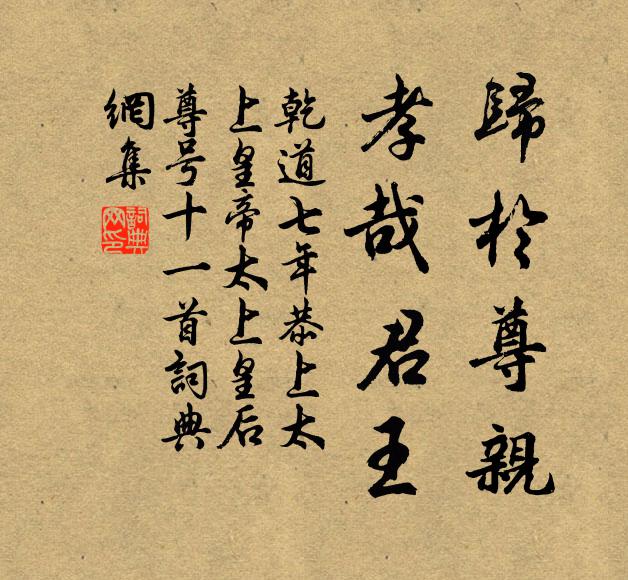 歸於尊親
孝哉君王
乾道七年恭上太
上皇帝太上皇后
尊号十一首詞典
網集
詞典网印